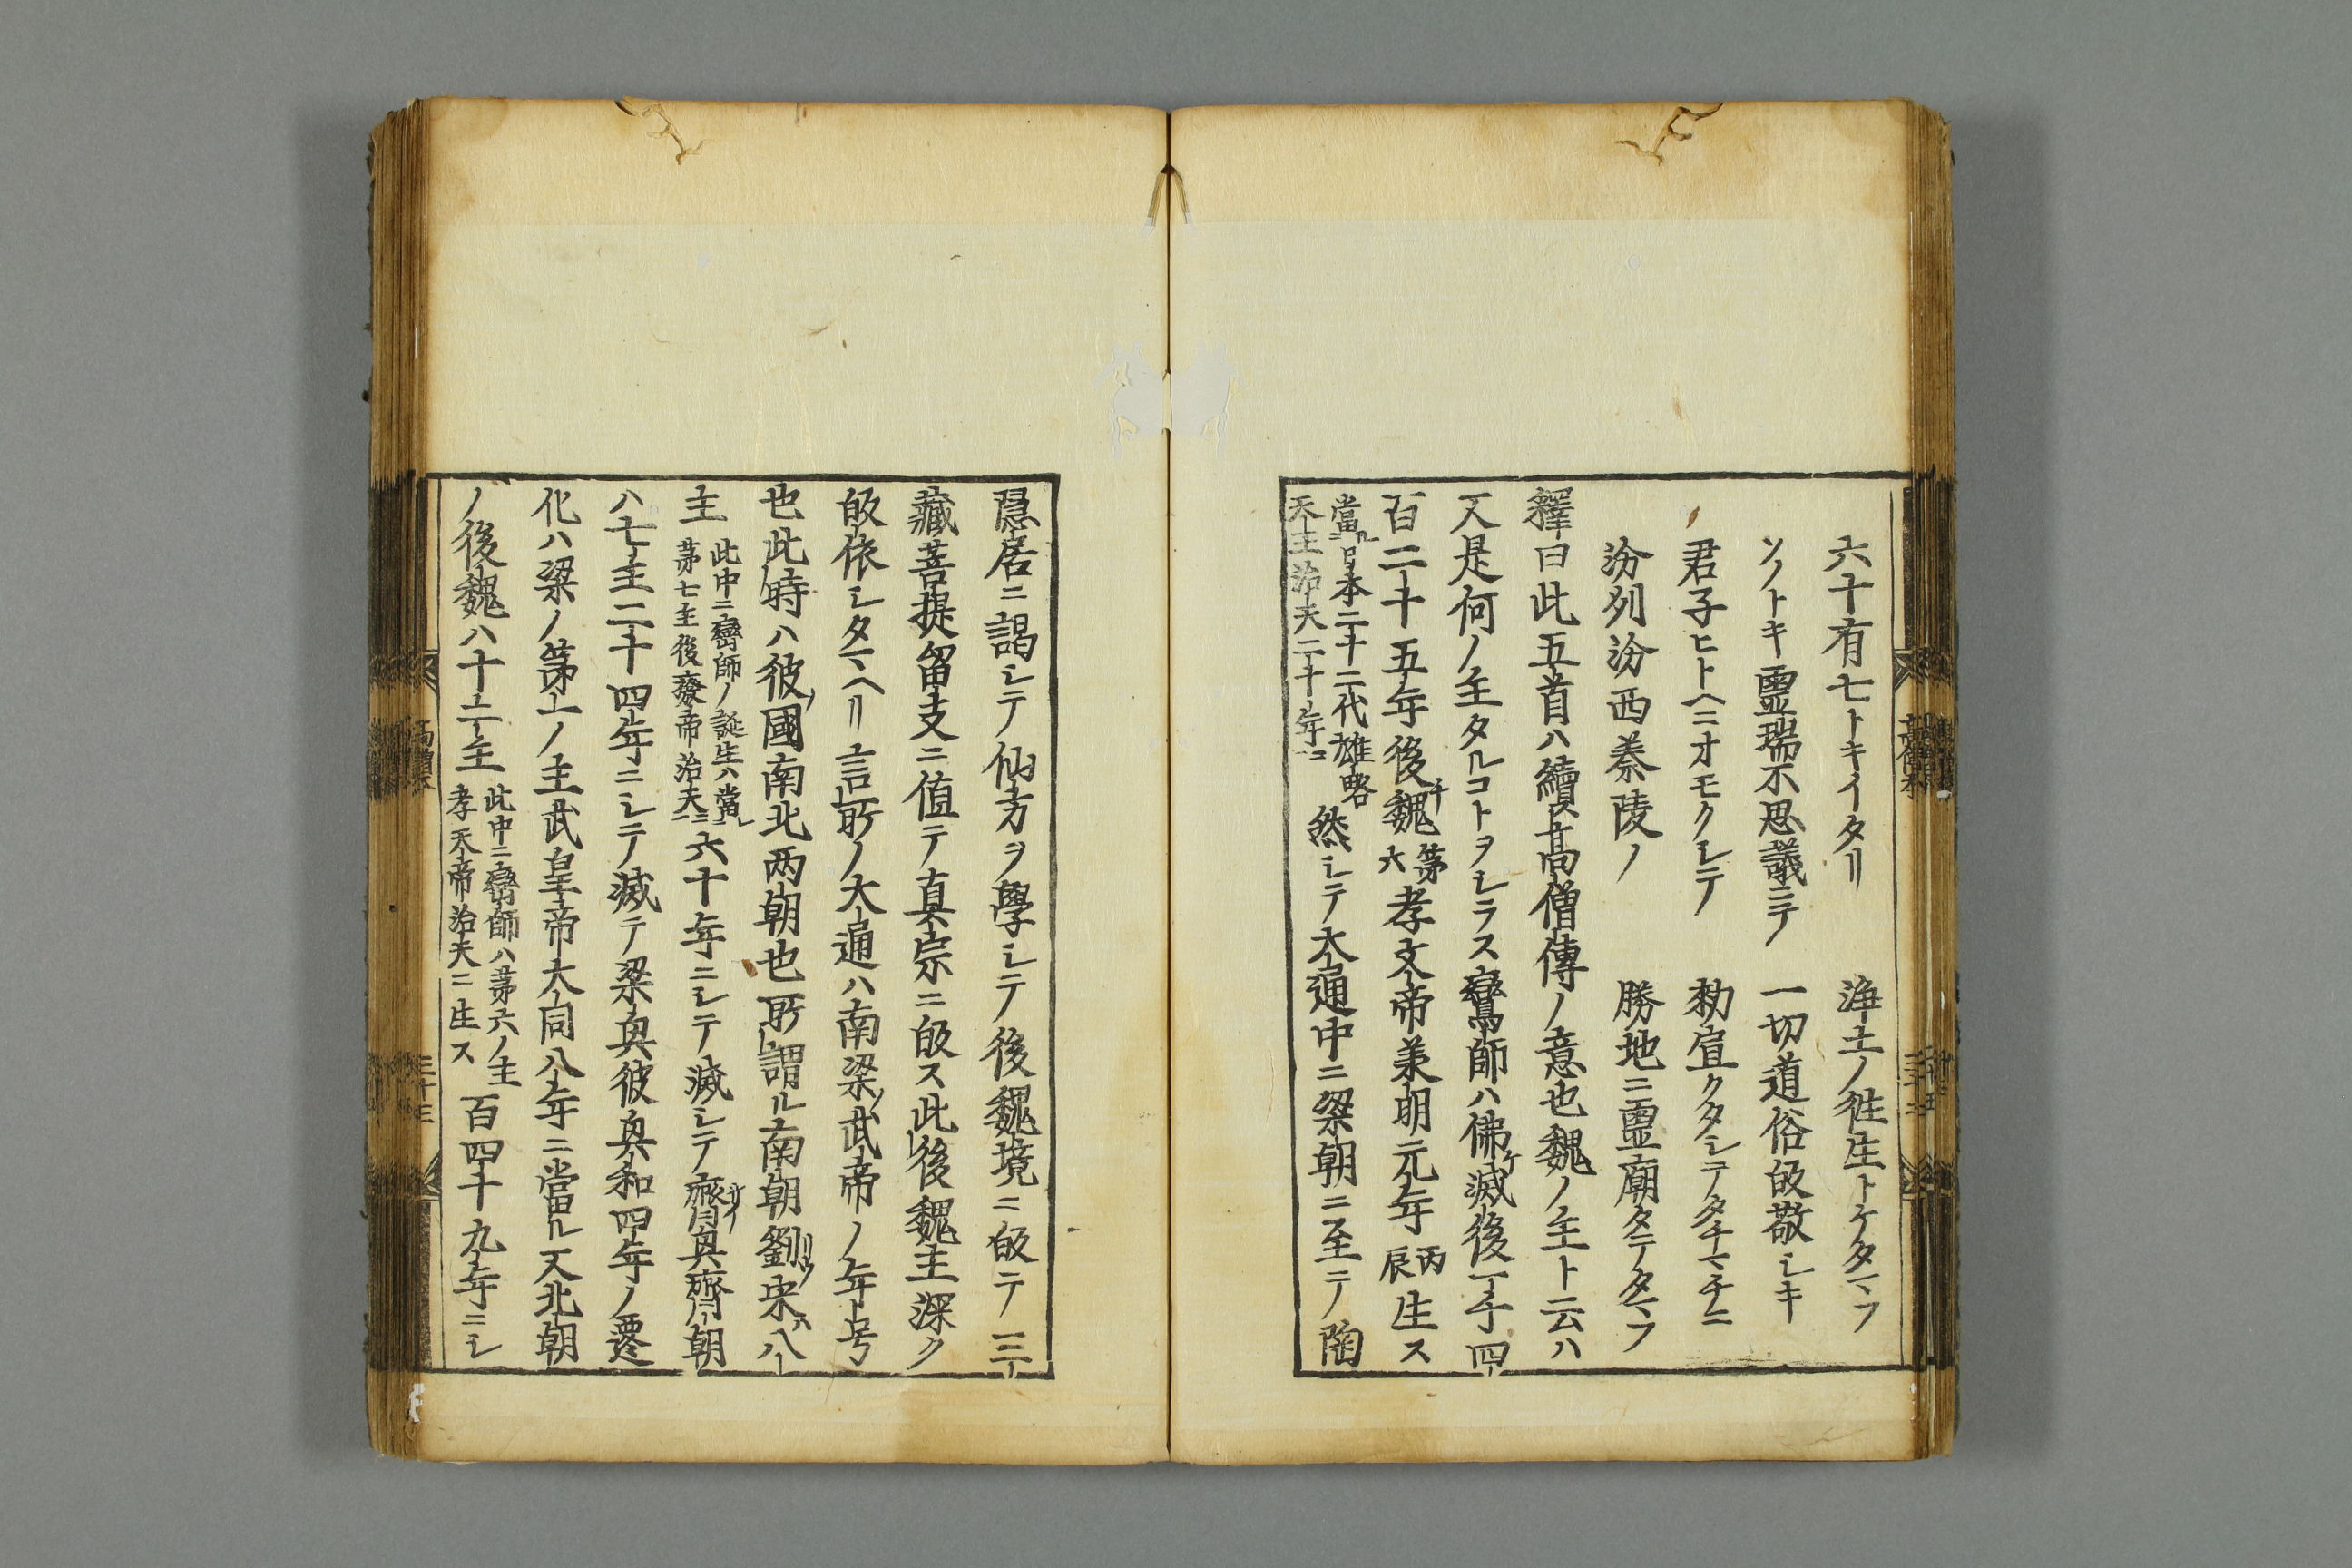 六十有七トキイタリ　浄土ノ徃生トケタマフ
ソノトキ霊瑞不思議ニテ　一切道俗皈敬シキ
君子ヒトヘニオモクシテ　勅宣クタシテタチマチニ
汾列汾西秦陵ノ　勝地ニ霊廟タテタマフ
釋曰此五首ハ續髙僧傳ノ意也魏ノ主ト云ハ
又是何ノ主タルコトヲシラス鸞師ハ佛滅後一千四
百二十五年後魏第六孝文帝羕明元年丙辰生ス
當ル日本二十二代雄略
天王治天二十年ニ
然シテ大通中ニ梁朝ニ至テ陶
隠居ニ謁シテ仙方ヲ學シテ後魏境ニ皈テ三
藏菩提留支ニ値テ真宗ニ皈ス此後魏主深ク
皈依シタマヘリ言所ノ大通ハ南梁ノ武帝ノ年号
也此時ハ彼ノ國南北两朝也所謂ル南朝劉宋ハ八
主
此中ニ鸞師ノ誕生ハ當ル
第七主後癈帝治天ニ
六十年ニシテ滅シテ齊臭齊朝
ハ七主二十四年ニシテ滅テ梁臭彼臭和四年ノ遷
化ハ梁ノ第一ノ主武皇帝大同八年ニ當ル又北朝
ノ後魏ハ十二主
此中ニ鸞師ハ第六ノ主
孝文帝治天ニ生ス
百四十九年ニシ